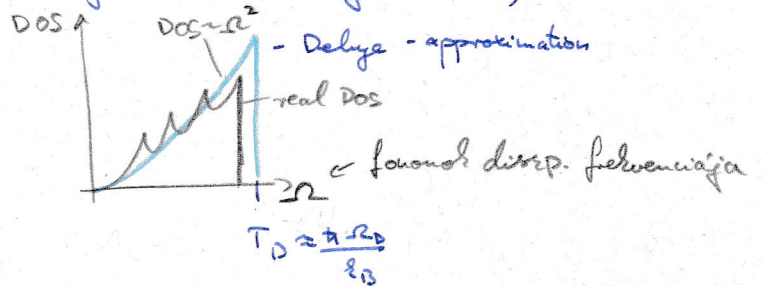 DOS
DOS~Ω²
- Debye - approximation
real DOS
Ω ← fononok diszp. frekvenciája
T_D ≈ ħΩ_D / k_B